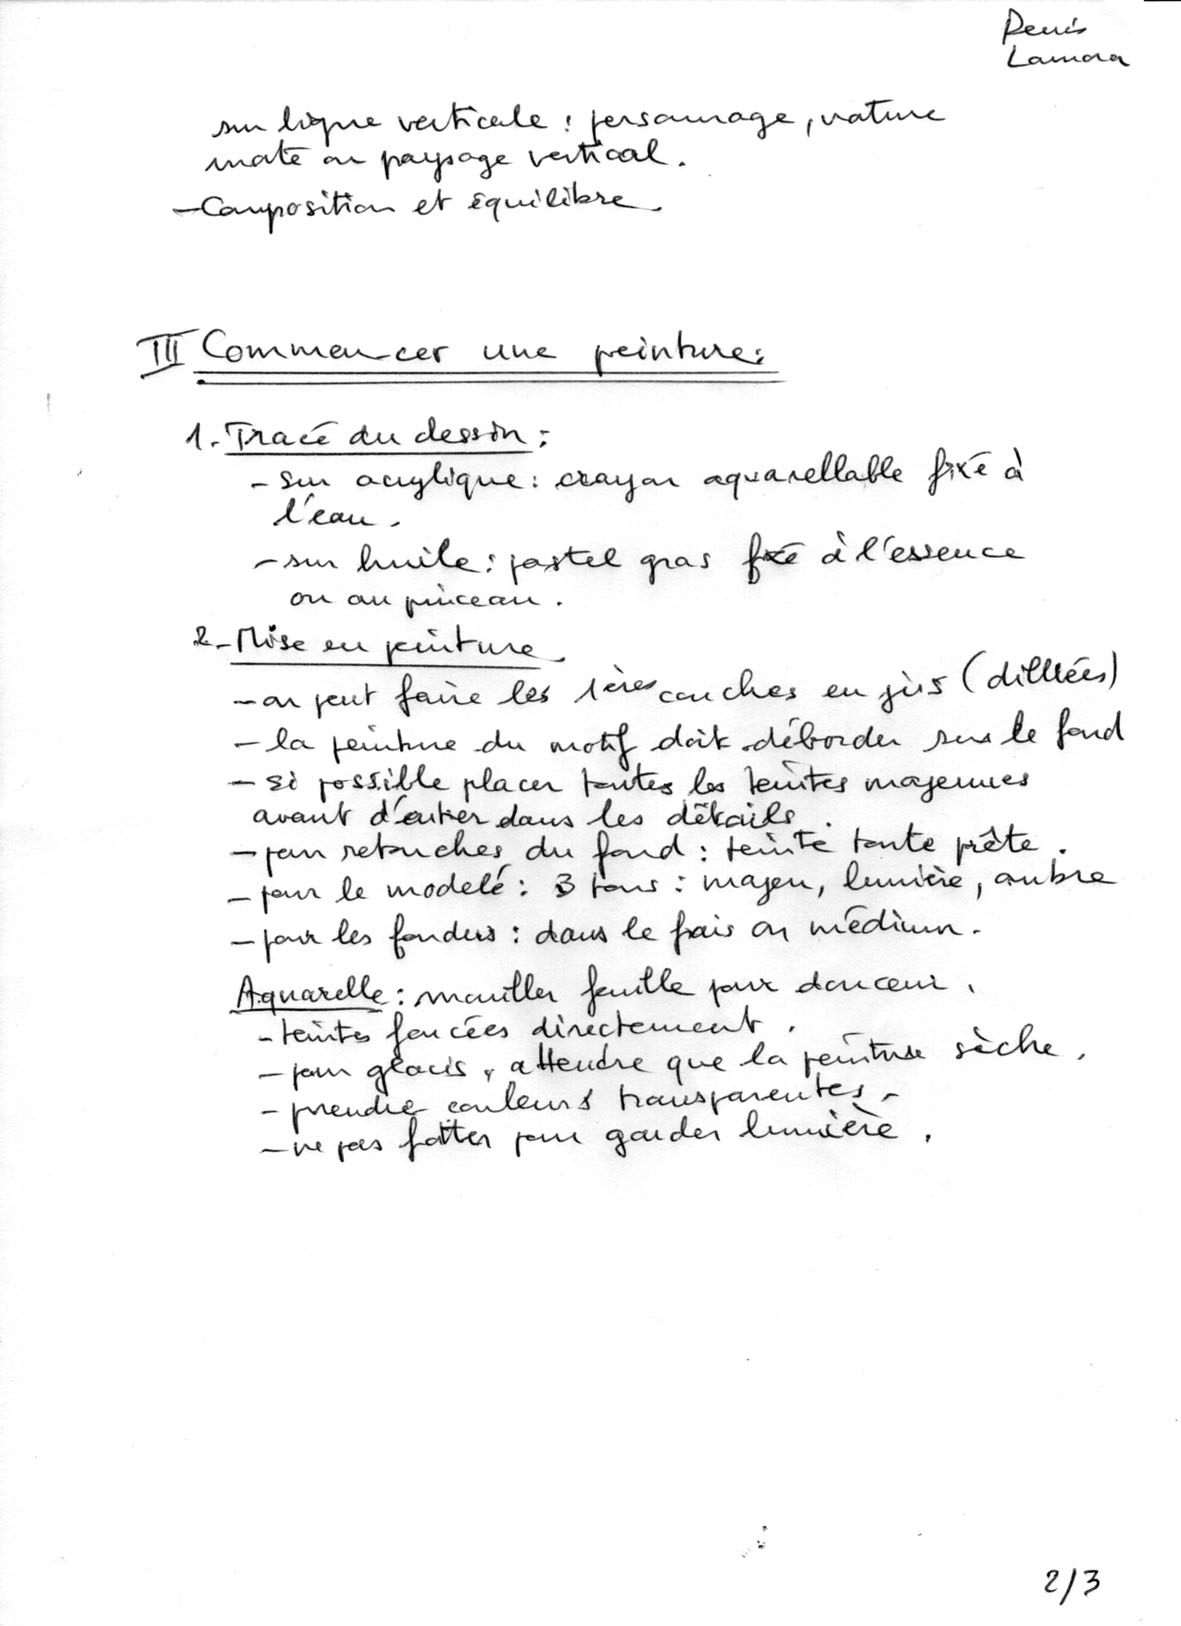 Denis
Lamora
sur ligne verticale : personnage, nature
morte ou paysage vertical.
- Composition et équilibre
III Commencer une peinture :
1. Tracé du dessin :
- sur acrylique : crayon aquarellable fixé à
l'eau.
- sur huile : pastel gras fixé à l'essence
ou au pinceau.
2 - Mise en peinture
- on peut faire les 1ères couches en jus (dilluées)
- la peinture du motif doit déborder sur le fond
- si possible placer toutes les teintes moyennes
avant d'entrer dans les détails.
- pour retouches du fond : teinte toute prête.
- pour le modelé : 3 tons : moyen, lumière, ombre
- pour les fondus : dans le frais ou médium.
Aquarelle : mouiller feuille pour douceur.
- teintes foncées directement.
- pour glacis, attendre que la peinture sèche.
- prendre couleurs transparentes.
- ne pas frotter pour garder lumière.
2/3